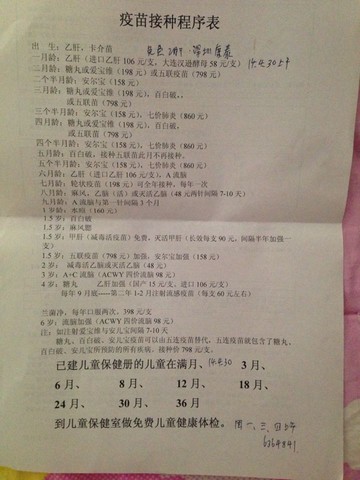 疫苗接种程序表
出 生：乙肝，卡介苗
一月龄：乙肝（进口乙肝 106 元/支，大连汉逊酵母 58 元/支）
二月龄：糖丸或爱宝维（198 元）或五联疫苗（798 元）
二个半月龄：安尔宝（158 元）
三月龄：糖丸或爱宝维（198 元），百白破，，
或五联苗（798 元）
三个半月龄：安尔宝（158 元），七价肺炎（860 元）
四月龄：糖丸或爱宝维（198 元），百白破，
或五联苗（798 元）
四个半月龄：安尔宝（158 元），七价肺炎（860 元）
五月龄：百白破，接种五联苗此月不再接种。
五个半月龄：安尔宝，七价肺炎（860 元）
六月龄：乙肝（进口乙肝 106 元/支），A 流脑
七月龄：轮状疫苗（198 元）可全年接种，每年一次
八月龄：麻风，乙脑（活）或灭活乙脑（48 元两针间隔 7-10 天）
九月龄：A 流脑与第一针间隔 3 个月
1 岁龄：水痘（160 元）
1.5 岁：百白破
1.5 岁：麻风腮
1.5 岁：甲肝（减毒活疫苗）免费，灭活甲肝（长效每支 90 元，间隔半年加强一
支）
1.5 岁：五联疫苗（798 元）加强，安尔宝（158 元）加强
2 岁：减毒活乙脑或灭活乙脑（48 元）
3 岁：A+C 流脑（ACWY 四价流脑 98 元）
4 岁：糖丸 乙肝加强（国产 15 元/支，进口 106 元/支）
每年 9 月底——第二年 1-2 月注射流感疫苗（每支 60 元左右）
兰菌净，每年口服两次，398 元/支
6 岁：流脑加强（ACWY 四价流脑 98 元）
注：如注射爱宝维与安儿宝间隔 7-10 天
糖丸、百白破、安儿宝疫苗可以由五连疫苗替代，五连疫苗就包含了糖丸、
百白破、安儿宝所预防的所有疾病，接种价 798 元/支。
已建儿童保健册的儿童在满月、 3 月、
6 月、 8 月、 12 月、 18 月、
24 月、 30 月、 36 月
到儿童保健室做免费儿童健康体检。周一、三、四上午